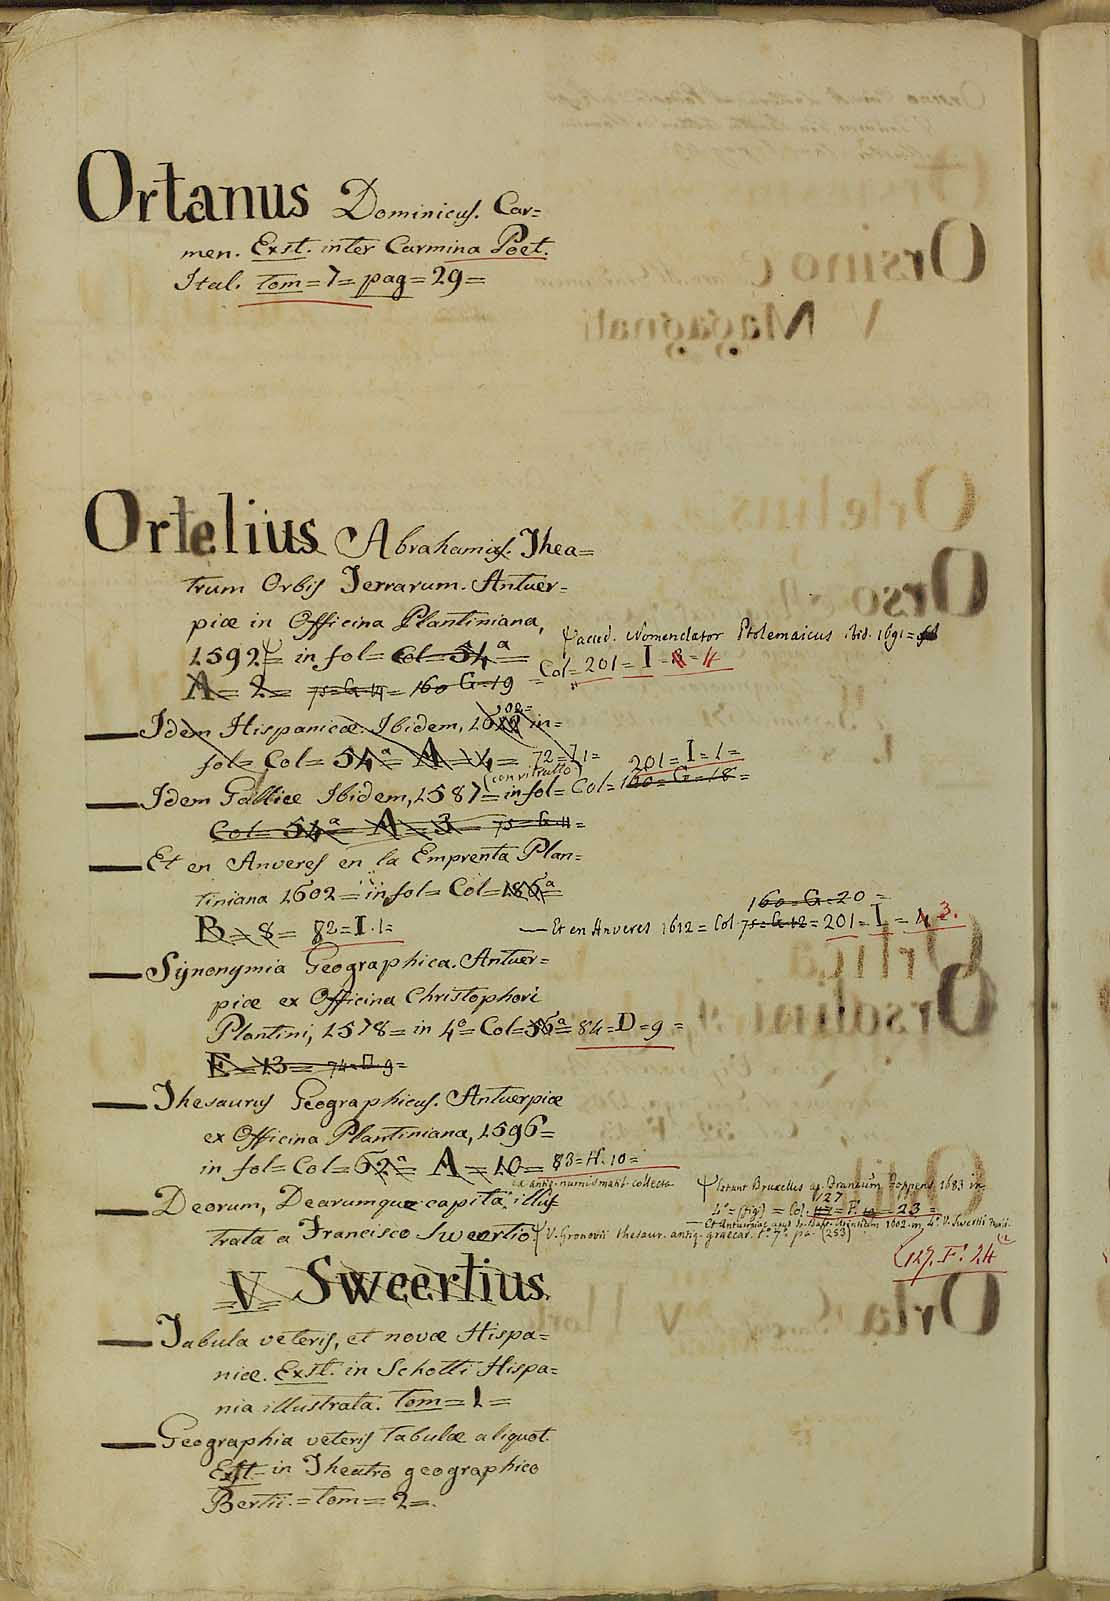 Ortanus Dominicus. Car=
men. Exst. inter Carmina Poet.
Ital. tom=7= pag=29=
Ortelius Abrahamus. Thea=
trum Orbis Terrarum. Antuer=
piæ in Officina Plantiniana,
acced. Nomenclator Ptolemaicus ibid. 1691=
1592= in fol= Col= 54ª=
Col=201=I=8=4
A=2= 75=G=11= 160 G=19
Idem Hispanicæ. Ibidem, 1612 in=
1602=
fol= Col= 54ª= A=4= 72=I.1=
201=I=1=
(con vitratto)
Idem Gallice Ibidem, 1587= in fol= Col=160=G=18=
Col= 54ª= A=3= 75=G=11=
Et en Anveres en la Emprenta Plan=
tiniana 1602= in fol= Col=186ª=
160=G=20=
B=8= 82=I.1=
Et en Anveres 1612= Col 75=G=12=201=I=4 3.
Synonymia Geographica. Antuer=
piæ ex Officina Christophori
Plantini, 1578= in 4º= Col=56ª= 84=D=9=
E=13= 74=D 9=
Thesaurus Geographicus. Antuerpiæ
ex Officina Plantiniana, 1596=
in fol= Col= 62ª= A=10= 83=H.10=
ex antiq. numismatib. collecta
Deorum, Dearumque capita, illus
trata a Francisco Sweertio
Bruxelles ap. Foppens 1683 in
127
4º= (fig.) = Col. 117= F. 23=
Et Antuerpiae 1602. in 4º. V. Swertii
V. Gronovii thesaur. antiq. graecar. tº 7º pa. (253)
127. F. 24
V Sweertius.
Tabula veteris, et novæ Hispa=
niæ. Exst. in Schotti Hispa=
nia illustrata. Tom=1=
Geographia veteris Tabulæ aliquot.
Exst= in Theatro geographico
Bertii.= tom=2=.